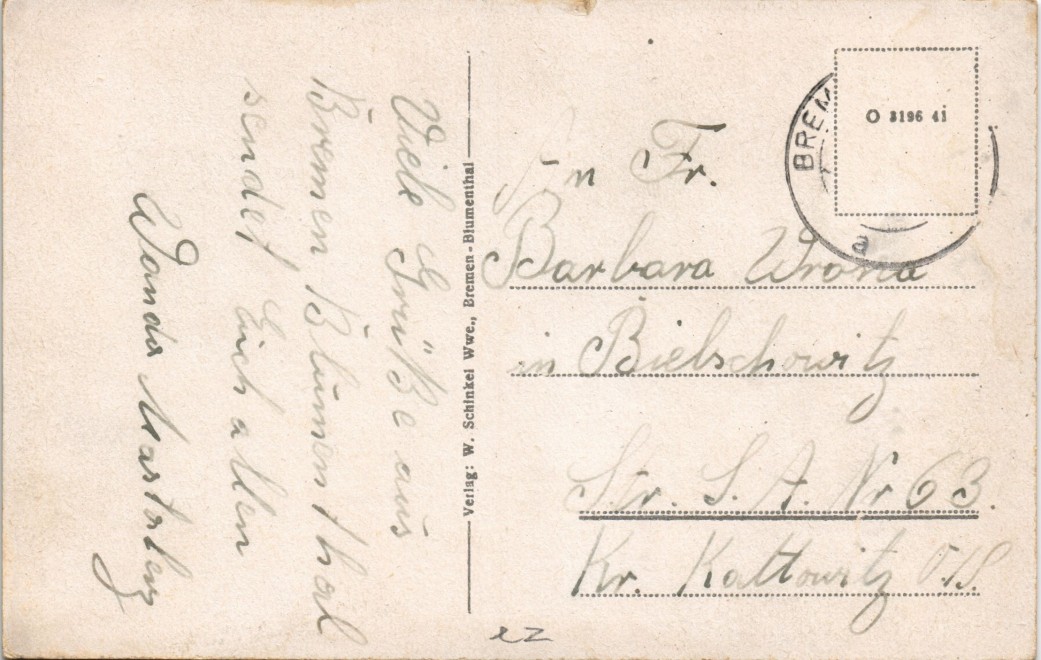 Viele Grüße aus
Bremen Blumenthal
sendet Euch allen
Wanda
Verlag: W. Schinkel Wwe., Bremen-Blumenthal
BREM
a
O 3196 41
An Fr.
Barbara Wrona
in Bielschowitz
Str. S. A. Nr 63.
Kr. Kattowitz O./S.